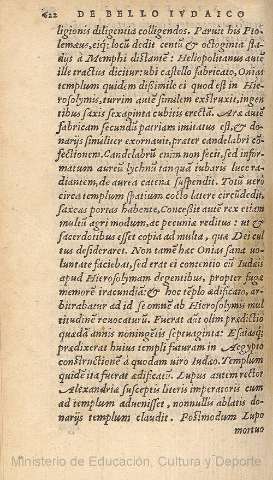 622 DE BELLO IVDAICO
ligionis diligentia colligendos. Paruit his Pto-
lemæus, eiq; locũ dedit centũ & octoginta sta-
dijs à Memphi distantẽ: Heliopolitanus autẽ
ille tractus dicitur: ubi castello fabricato, Onias
templum quidem dißimile ei quod est in Hie-
rosolymis, turrim autẽ similem exstruxit, ingen
tibus saxis sexaginta cubitis erectã. Aræ autẽ
fabricam secundũ patriam imitatus est, & do-
narijs similiter exornauit, præter candelabri cõ-
fectionem. Candelabrũ enim non fecit, sed infor
matum aureũ lychnũ tanquã iubaris luce ra-
diantem, de aurea catena suspendit. Totũ uerò
circa templum spatium cocto latere circũdedit,
saxeas portas habente. Conceßit autẽ rex etiam
multũ agri modum, ac pecuniæ reditus: ut &
sacerdotibus esset copia ad multa, quæ Dei cul
tus desideraret. Non tamẽ hæc Onias sana uo-
luntate faciebat, sed erat ei contentio cũ Iudæis
apud Hierosolymam degentibus, propter fugæ
memorẽ iracundiã: & hoc tẽplo ædificato, ar-
bitrabatur ad id se omnẽ ab Hierosolymis mul
titudinẽ reuocaturũ. Fuerat autẽ olim prædictio
quædã annis nõningẽtis septuaginta: Esaiasq;
prædixerat huius templi futuram in Aegypto
constructionẽ à quodam uiro Iudæo. Templum
quidẽ ita fuerat ædificatũ. Lupus autem rector
Alexandriæ susceptis literis imperatoris cum
ad templum aduenisset, nonnullis ablatis do-
narijs templum claudit. Postmodum Lupo
mortuo
Ministerio de Educación, Cultura y Deporte